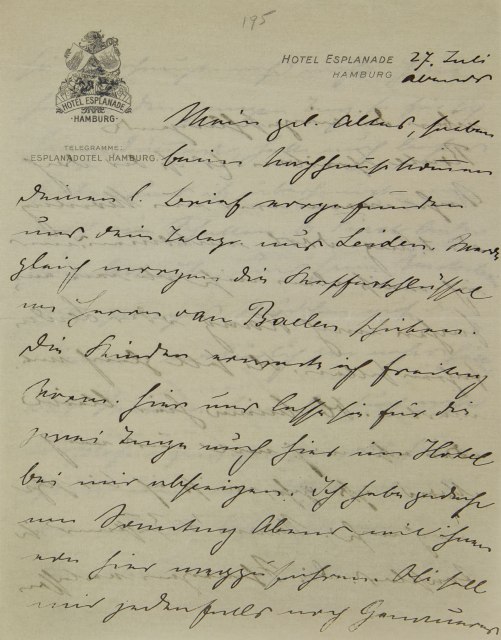 195
HOTEL ESPLANADE 27. Juli
HAMBURG abends
HOTEL ESPLANADE
·HAMBURG·
TELEGRAMME:
ESPLANADOTEL HAMBURG.
Mein gel. Altes, soeben
beim Nachhausekommen
deinen l. Brief vorgefunden
und dein Telegr. aus Leiden. Werde
gleich morgen die Kofferschlüssel
an Herrn van Baelen schicken.
Die Kinder erwarte ich Freitag
Vorm. hier und lasse sie für die
zwei Tage auch hier im Hotel
bei mir absteigen. Ich habe gedacht
am Sonntag Abend mit ihnen
von hier wegzufahren. Ali soll
mir jedenfalls noch Genaueres